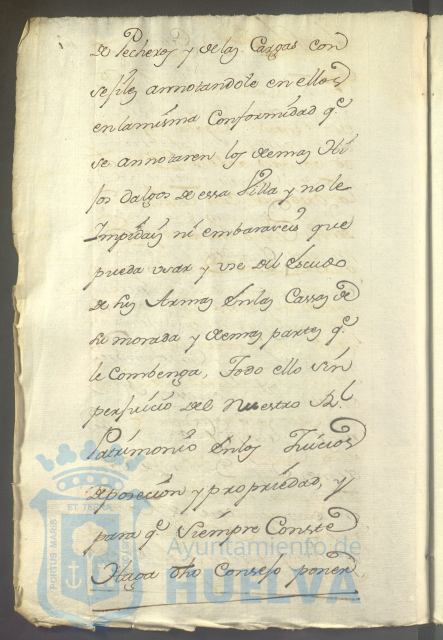 de Pecheros y de las Cargas con
sejiles annotandole en ellos
en la misma Conformidad q.e
se annotaren los demas Hi
jos dalgo de essa Villa y no le
Impidais ni embaraceis que
pueda usar y use del Escudo
de sus Armas en las Cassas de
su morada y demas partes q.e
le Combenga, Todo ello sin
perjuicio del Nuestro R.l
Patrimonio en los Juicios
de posecion y propriedad, y
para q.e siempre Conste
Haga dho Consejo poner
PORTUS MARIS ET TERRAE
Ayuntamiento de
HUELVA